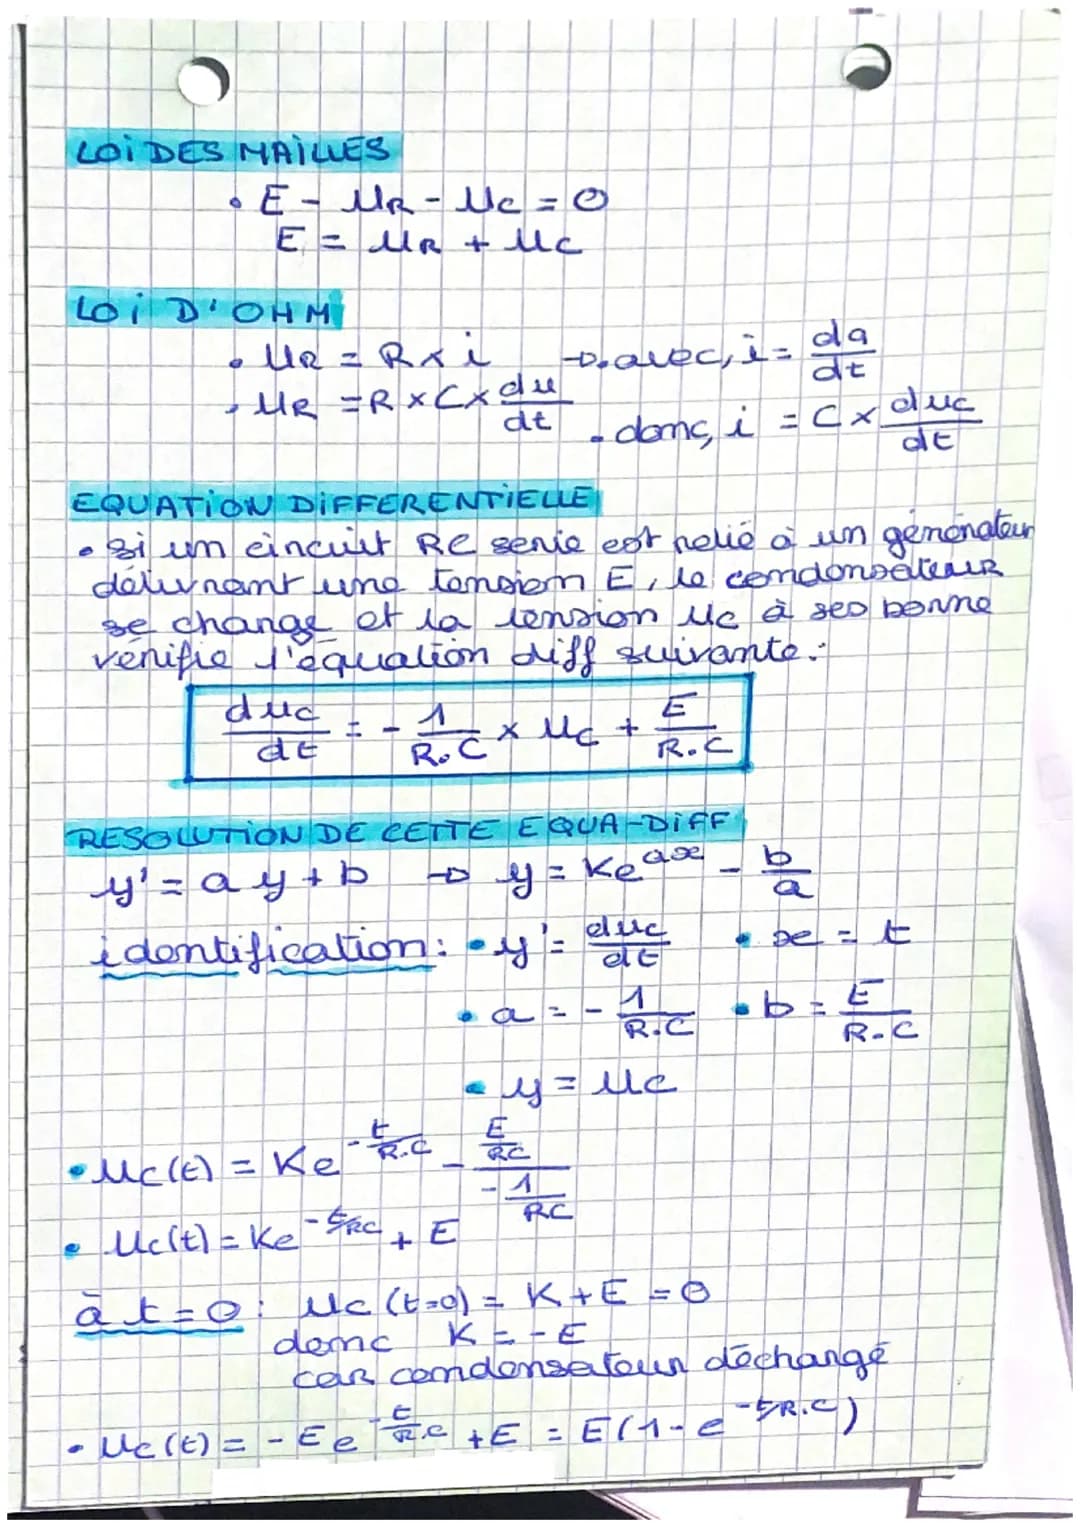 LOI DES MAILLES
• E - UR - Uc = 0
E = UR + Uc
LOI D'OHM
• UR = R x i → avec, i = dq/dt
• UR = R x C x du/dt
• donc, i = C x duc/dt
EQUATION DIFFERENTIELLE
• Si un circuit RC serie est relié à un générateur
délivrant une tension E, le condensateur
se charge et la tension Uc à ses borne
vérifie l'équation diff suivante :
duc/dt = - 1/R.C x Uc + E/R.C
RESOLUTION DE CETTE EQUA-DIFF
y' = a y + b → y = Ke^ax - b/a
identification : • y' = duc/dt • x = t
• a = - 1/R.C • b = E/R.C
• y = Uc
• Uc(t) = Ke^-t/R.C - (E/RC)/(-1/RC)
• Uc(t) = Ke^-t/RC + E
à t=0 : Uc (t=0) = K + E = 0
donc K = -E
car condensateur déchargé
• Uc(t) = - E e^-t/R.C + E = E(1-e^-t/R.C)